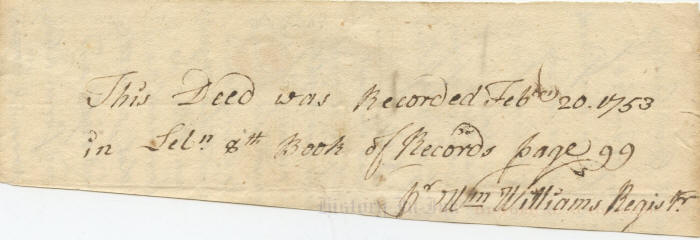 This Deed was Recorded Feb'ry 20. 1753
in Lebn 8th Book of Records page 99
pr Wm Williams Registr